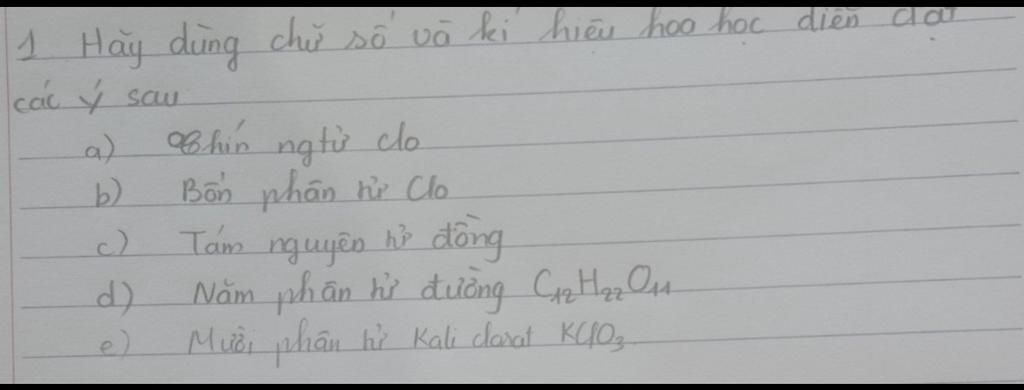 1 Hãy dùng chữ số và kí hiệu hoa học diễn đạt
các ý sau
a) Chín ngtử clo
b) Bốn phân tử Clo
c) Tám nguyên tử đồng
d) Năm phân tử đường C₁₂H₂₂O₁₁
e) Mười phân tử Kali clorat KClO₃